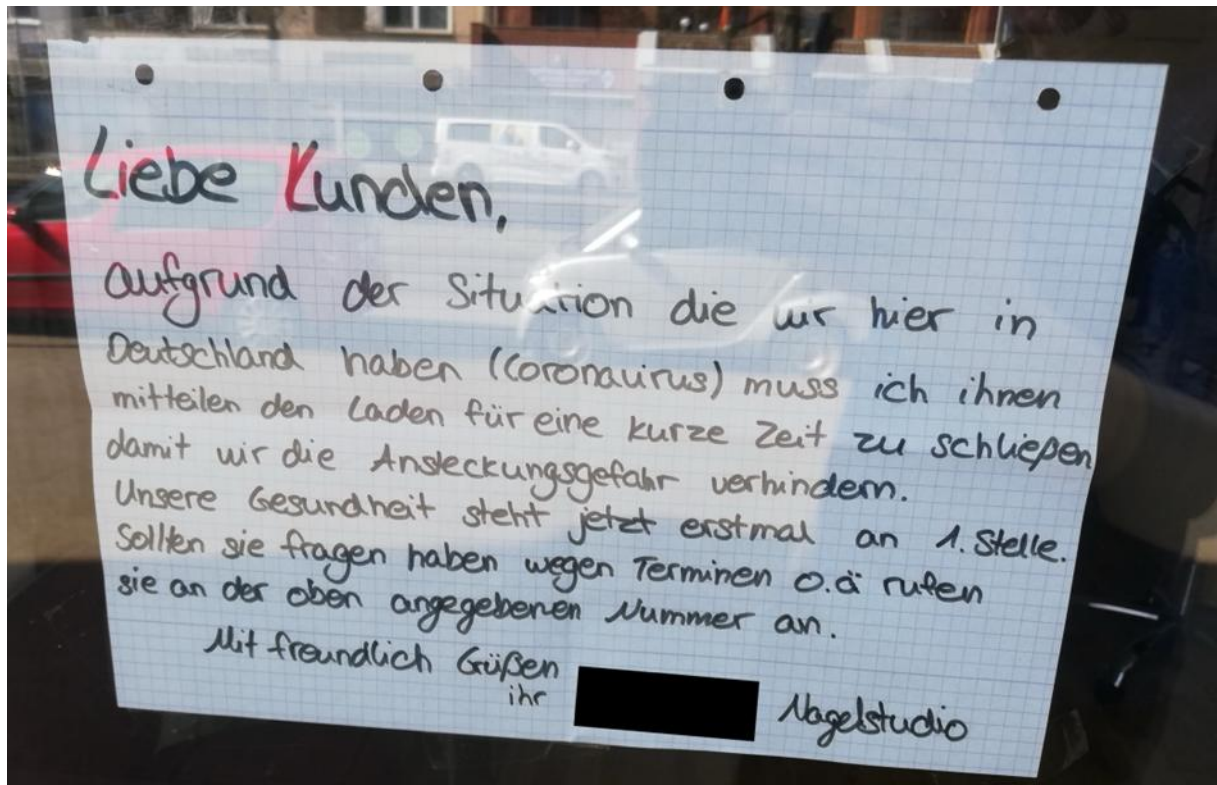 Liebe Kunden,
aufgrund der Situation die wir hier in
Deutschland haben (Coronavirus) muss ich ihnen
mitteilen den Laden für eine kurze Zeit zu schließen
damit wir die Ansteckungsgefahr verhindern.
Unsere Gesundheit steht jetzt erstmal an 1. Stelle.
Sollten sie fragen haben wegen Terminen o.ä rufen
sie an der oben angegebenen Nummer an.
Mit freundlich Güßen
ihr Nagelstudio